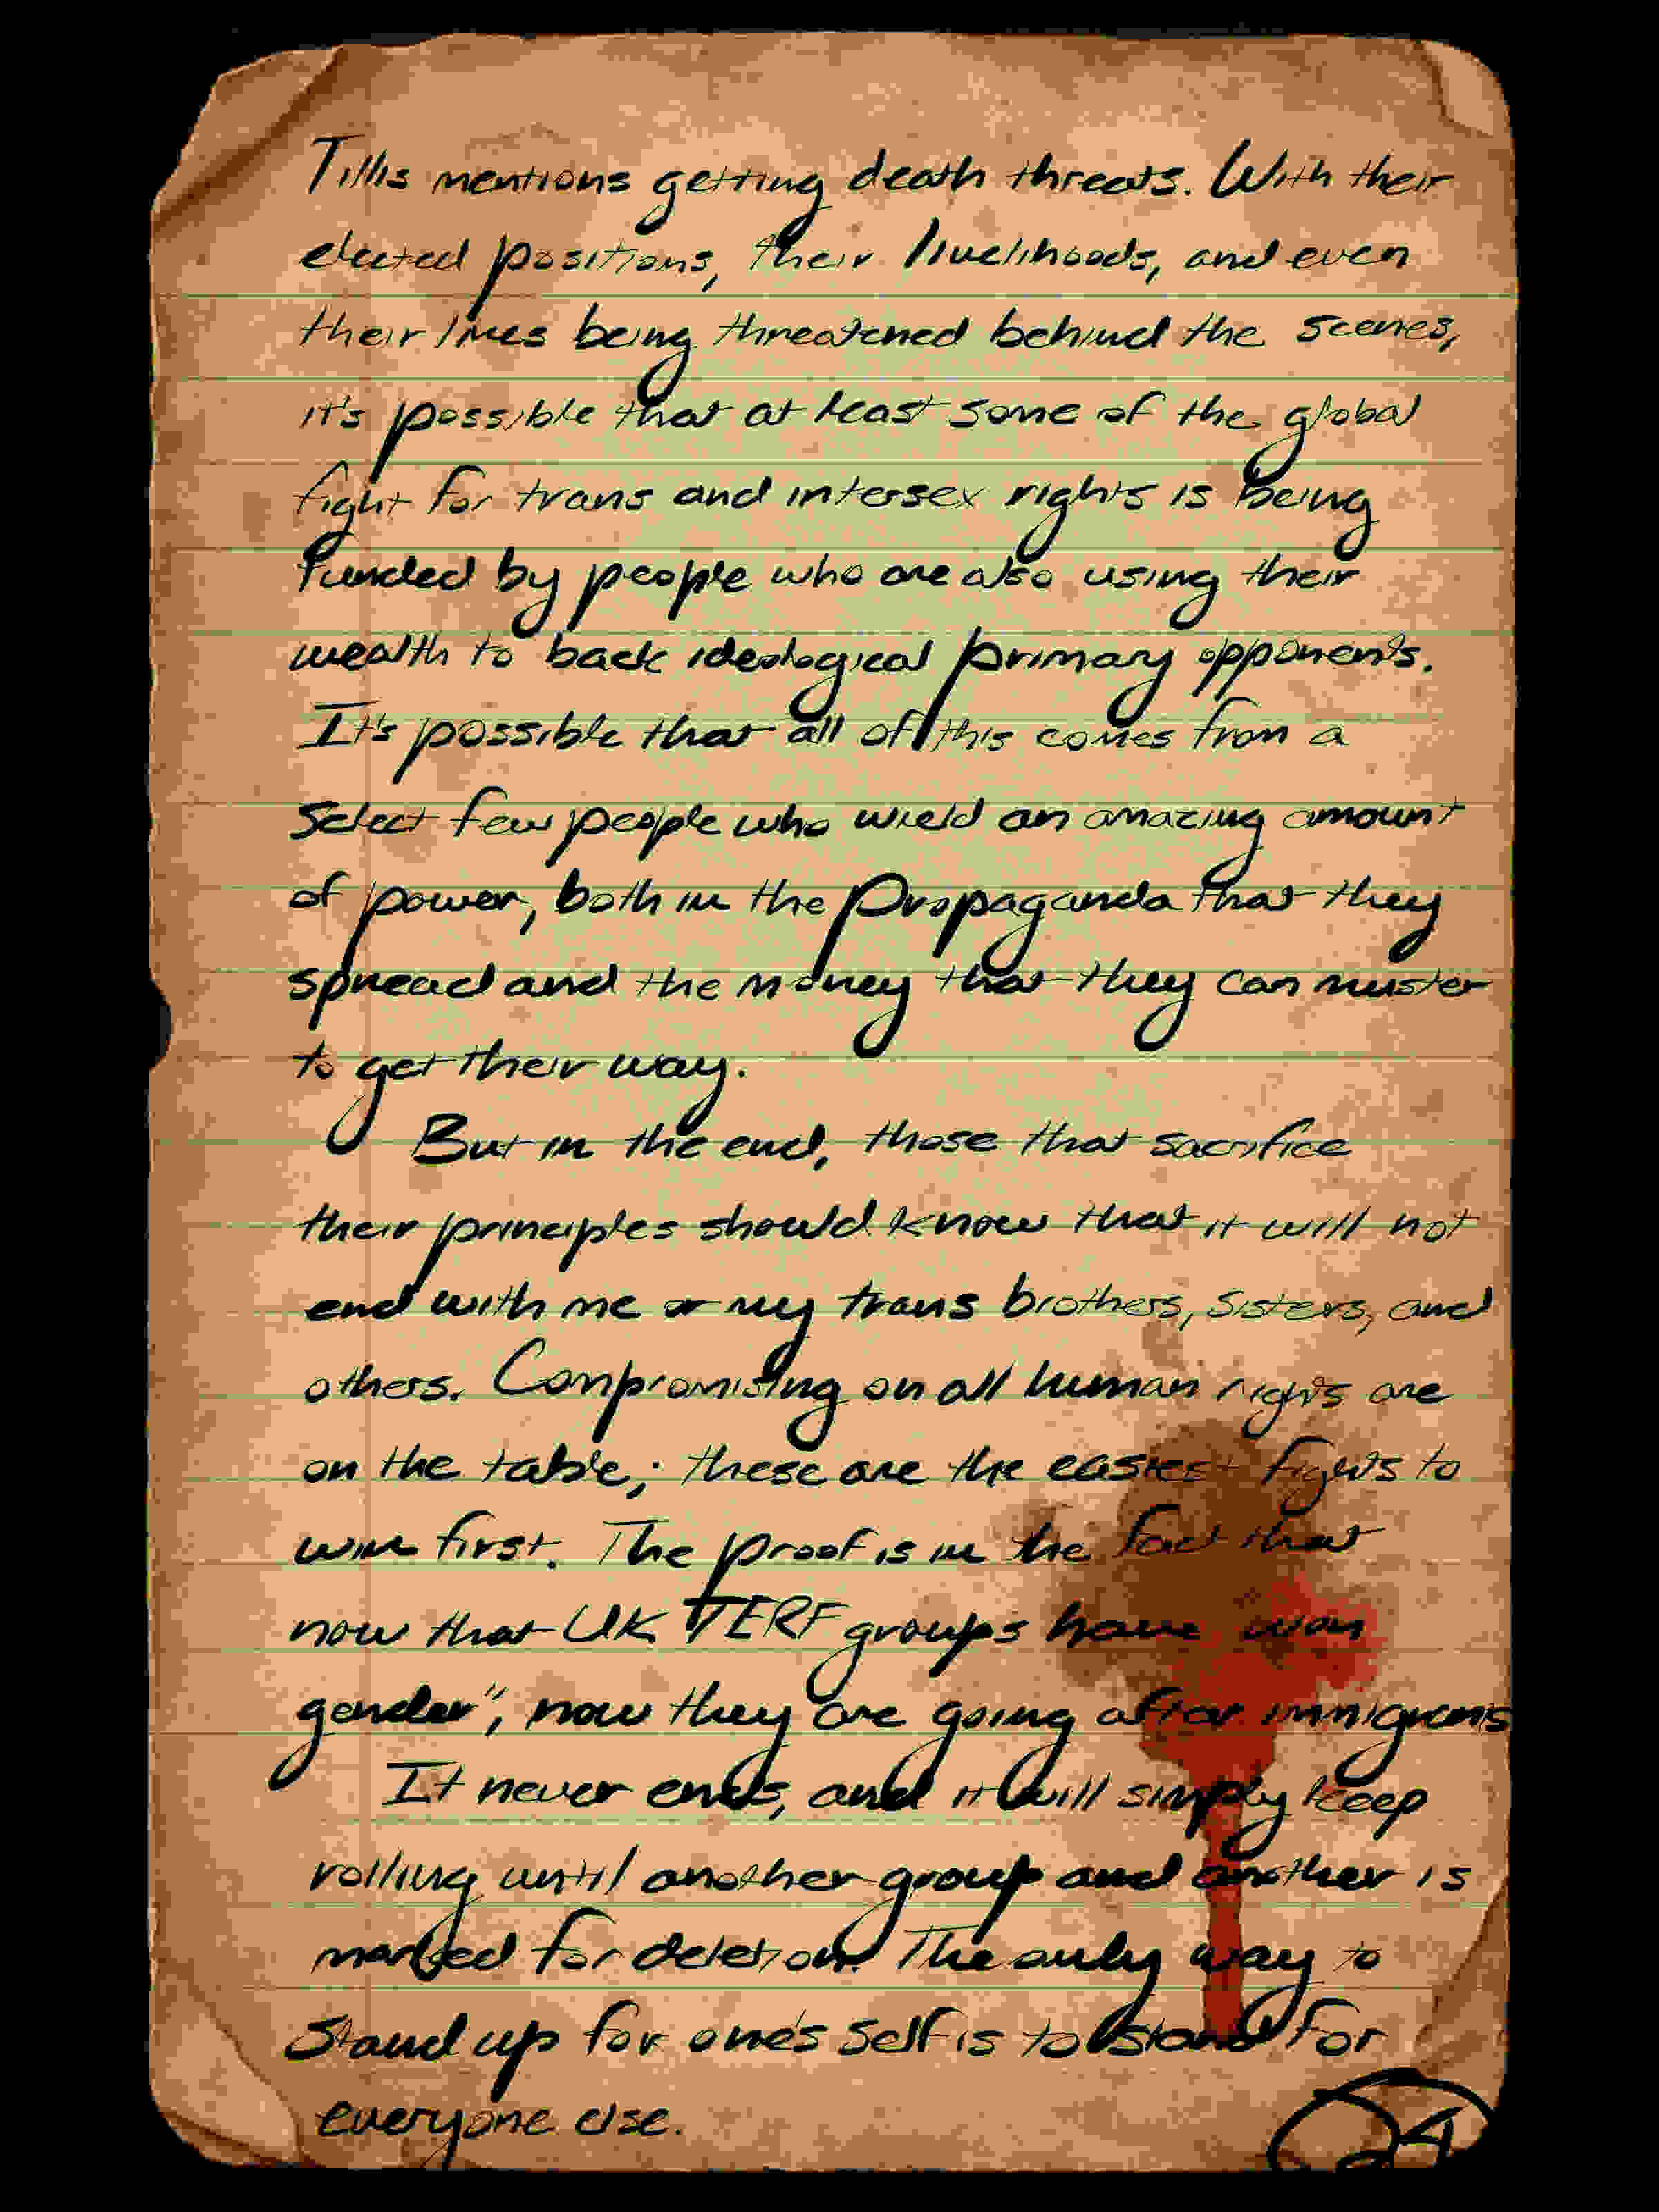 Tillis mentions getting death threats. With their
elected positions, their livelihoods, and even
their lives being threatened behind the scenes,
it's possible that at least some of the global
fight for trans and intersex rights is being
funded by people who are also using their
wealth to back ideological primary opponents.
It's possible that all of this comes from a
select few people who wield an amazing amount
of power, both in the propaganda that they
spread and the money that they can muster
to get their way.
But in the end, those that sacrifice
their principles should know that it will not
end with me or my trans brothers, sisters, and
others. Compromising on all human rights are
on the table; these are the easiest fights to
win first. The proof is in the fact that
now that UK TERF groups have won
gender", now they are going after immigrants
It never ends, and it will simply keep
rolling until another group and another is
marked for deletion. The only way to
stand up for one's self is to stand for
everyone else.